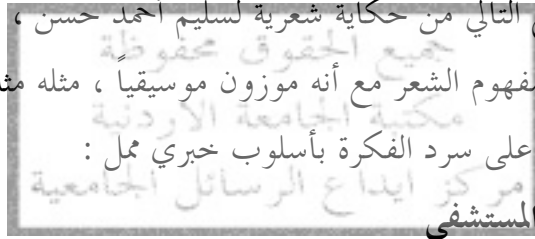 التالي من حكاية شعرية لسليم أحمد حسن ،
جميع الحقوق محفوظة
مفهوم الشعر مع أنه موزون موسيقياً ، مثله
مكتبة الجامعة الاردنية
على سرد الفكرة بأسلوب خبري ممل :
مركز ايداع الرسائل الجامعية
المستشفى